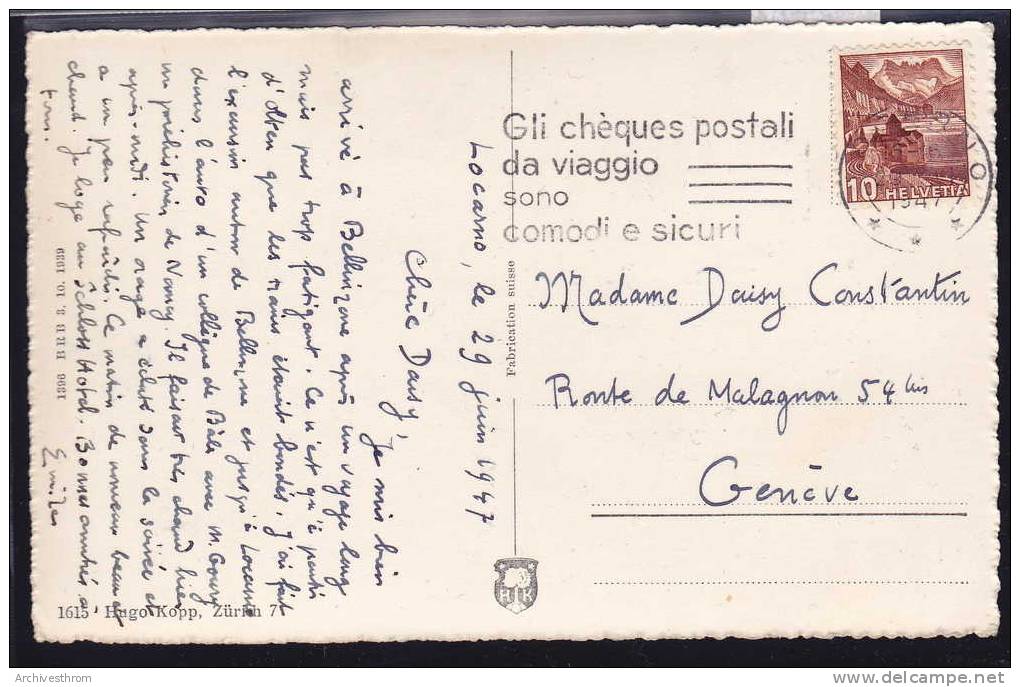 Locarno, le 29 juin 1947
Chère Daisy,
Je suis bien
arrivé à Bellinzone après un voyage long
mais pas trop fatigant. Ce n'est qu'à partir
d'Olten que les trains étaient bondés. J'ai fait
l'excursion autour de Bellinzone et jusqu'à Locarno
dans l'auto d'un collègue de Bâle avec M. Goury
un préhistorien de Nancy. Il faisait très chaud hier
après-midi. Un orage a éclaté dans la soirée et
a un peu rafraîchi. Ce matin de nouveau beau et
chaud. Je loge au Schloss Hotel. Bonnes amitiés à
tous.
Emile
1896 H H H 3. 10. 1939
1615 Hugo Kopp, Zürich 7
Fabrication suisse
HK
Gli chèques postali
da viaggio
sono
comodi e sicuri
1947
10 HELVETIA
Madame Daisy Constantin
Route de Malagnon 54 bis
Genève
Archivesthrom
delcampe.net